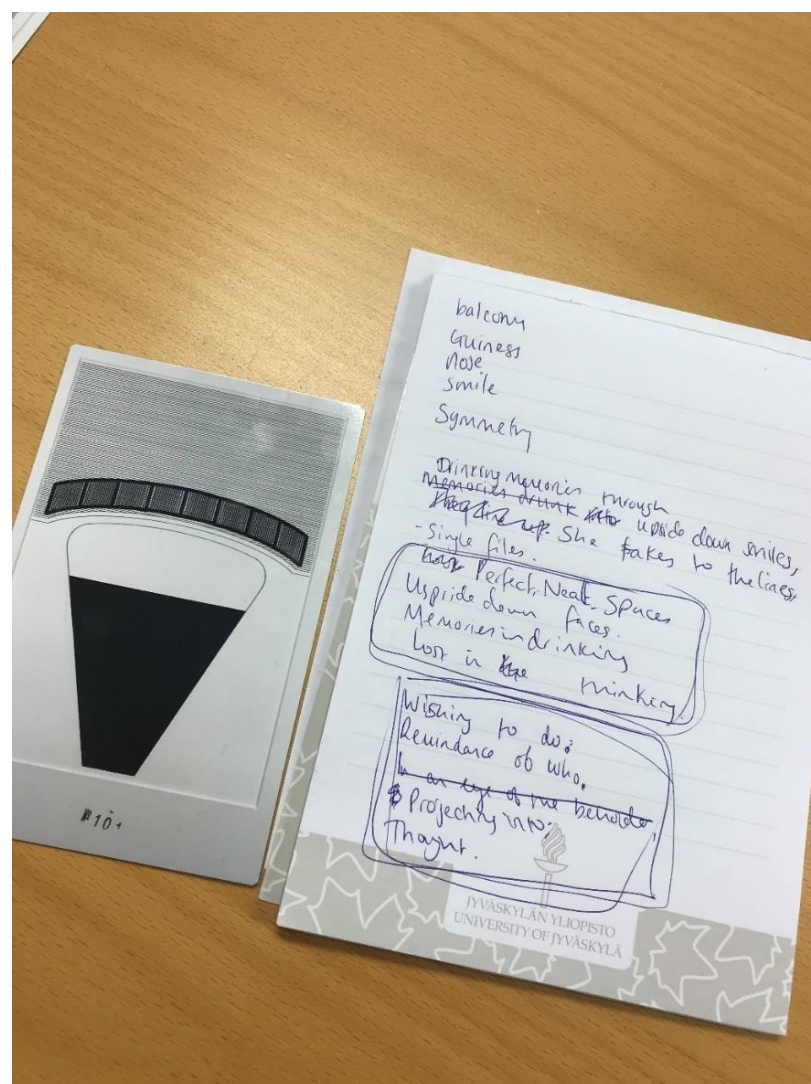 balcony
Guiness
Nose
smile
Symmetry
Drinking Memories through
Memories drunk into upside down smiles,
She takes to the lines,
- Single files.
Perfect. Neat. Spaces
Uspride down faces.
Memories in drinking
Lost in the thinking.
Wishing to do;
Remindance of who,
In an eye of the beholder,
Projecting into;
Thought.
#10
JYVÄSKYLÄN YLIOPISTO
UNIVERSITY OF JYVÄSKYLÄ